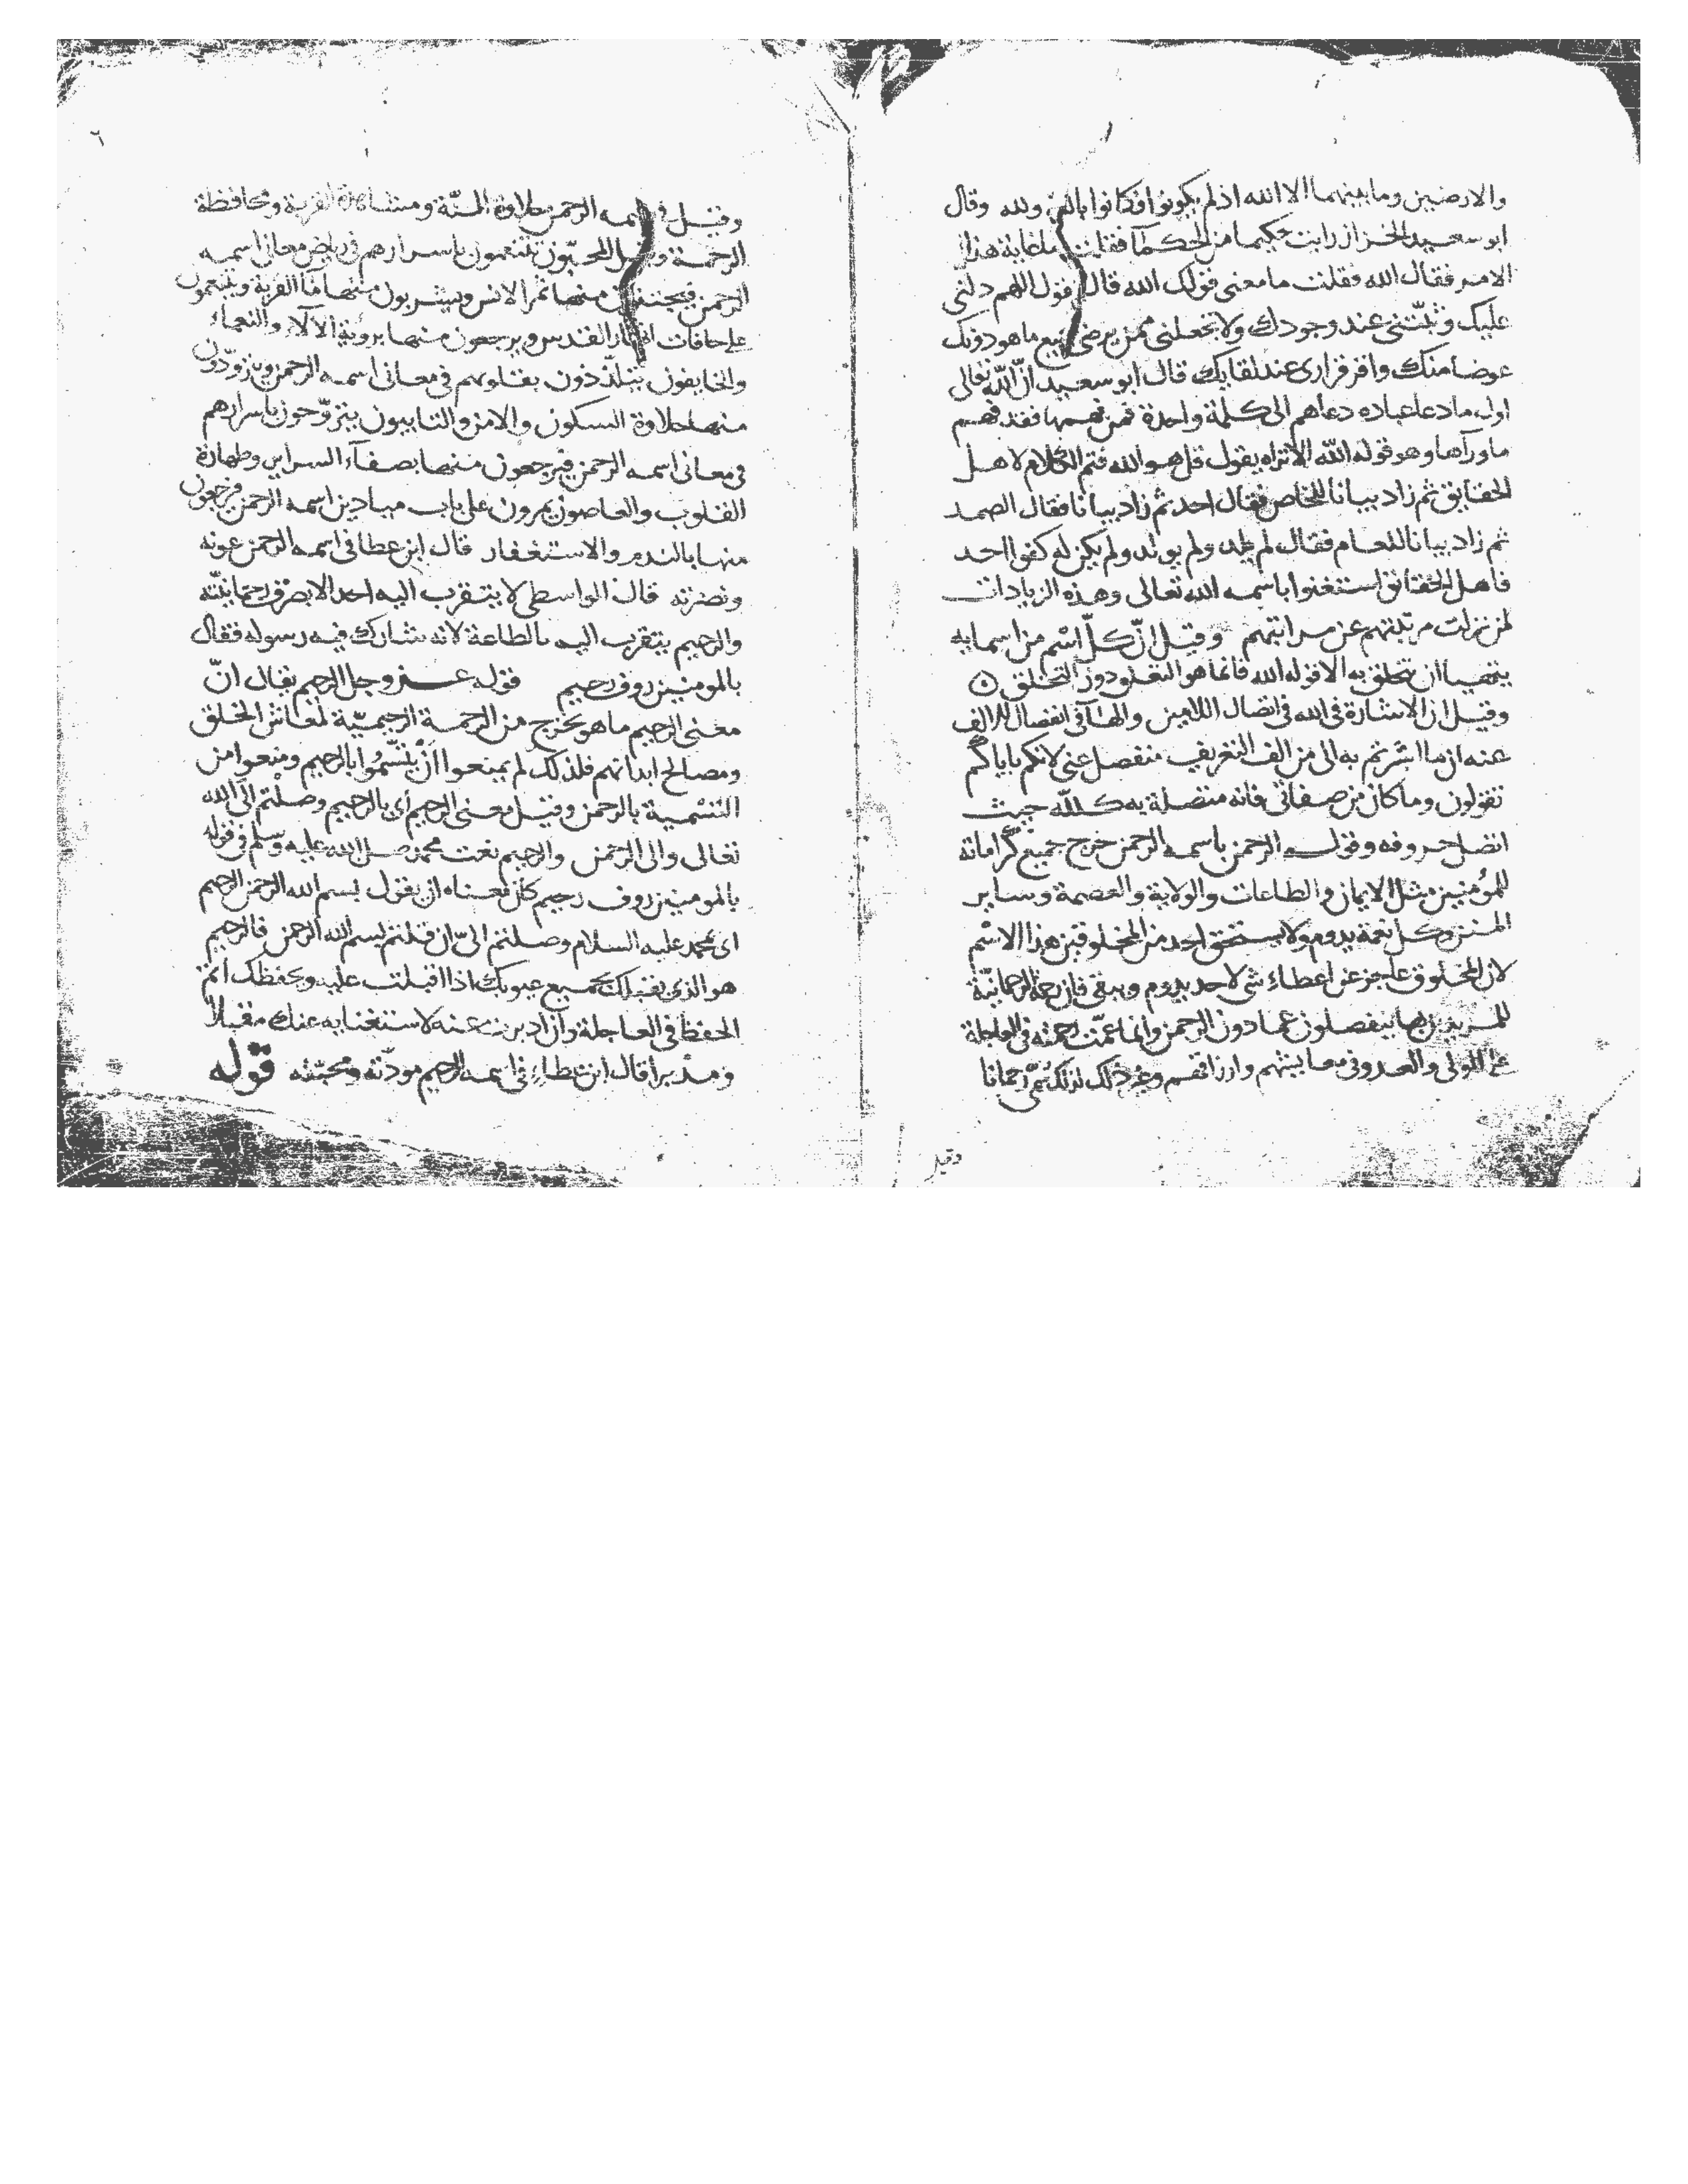 والارضين وما بينهما الا الله اذ لم يكونوا فكانوا بالله ولله وقال
ابو سعيد الخراز رايت حكيما من الحكمآ فقلت ما غاية هذا
الامر فقال الله فقلت ما معنى قولك الله قال قول اللهم دلنى
عليك وثبّتنى عند وجودك ولا تجعلنى ممن يرضى بجميع ما هو دونك
عوضا منك واقر قرارى عند لقايك قال ابو سعيد انّ الله تعالى
اول ما دعا عباده دعاهم الى كلمة واحدة فمن فهمها فقد فهم
ما ورآها وهو قوله الله الا تراه يقول قل هو الله فتم الكلام لاهل
الحقايق ثم زاد بيانا للخاص فقال احد ثم زاد بيانا فقال الصمد
ثم زاد بيانا للعام فقال لم يلد ولم يولد ولم يكن له كفوا احد
فاهل الحقائق استغنوا باسمه الله تعالى وهذه الزيادات
لمن نزلت مرتبتهم عن مراتبهم وقيل انّ كلّ اسْم من اسمايه
يتهيا ان تتخلق به الا قوله الله فانما هو للتعلق دون التخلق
وقيل ان الاشارة فى الله فى اتصال اللامين والهآ فى انفصال الالف
عنه ان ما اشرتم به الى من الف التعريف منفصل عنى لانكم باياكم
تقولون وما كان من صفاتى فانه متصلة به كلله حيث
اتصل حروفه وقوله الرحمن باسمه الرحمن خرج جميع كراماته
للمؤمنين مثل الايمان والطاعات والولاية والعصمة وساير
المنن وكل نعمة يدوم ولا يستحق احد من المخلوقين هذا الاسْم
لان المخلوق عاجز عن اعطاء شى لاحد يدوم ويبقى فان رحمة الرحمانيّة
للمريدين بها ينفصلون عما دون الرحمن وانما عمّت رحمته فى العاجلة
على الولى والعدو فى معايشهم وارزاقهم وغير ذلك لذلك سُمّى رحمانا
وقيل
٦
وقيل فى اسمه الرحمن حلاوة المنّة ومشاهدة القربة ومحافظة
الرحمة وقيل المحبّون يتنعمون باسرارهم فى رياض معانى اسمه
الرحمن فيجتنون منها ثمر الانس ويشربون منها مآ القربة ويتنعمون
على حافات انهار القدس ويرجعون منها برؤية الآلآ والنعمآء
والخايفون يتلذّذون بقلوبهم فى معانى اسمه الرحمن ويتزوّدون
منها حلاوة السكون والامن والتايبون يتروّحون باسرارهم
فى معانى اسمه الرحمن فيرجعون منها بصفآء السراير وطهارة
القلوب والعاصون يمرون على باب ميادين اسمه الرحمن فيرجعون
منها بالندم والاستغفار قال ابن عطا فى اسمه الرحمن عونه
ونصرته قال الواسطى لا يتقرب اليه احد الا بصرف رحمانيّته
والرحيم يتقرب اليه بالطاعة لانه شارك فيه رسوله فقال
بالمومنين روف رحيم قوله عز وجل الرحيم يقال انّ
معنى الرحيم ما هو يخرج من الرحمة الرحيميّة لمعاش الخلق
ومصالح ابدانهم فلذلك لم يمنعوا اَنْ يَتَسَمُّوا بالرحيم ومنعوا من
التسْمية بالرحمن وقيل معنى الرحيم اى بالرحيم وصلْتم الى الله
تعالى والى الرحمن والرحيم نعت محمد صلى الله عليه وسلم فى قوله
بالمومنين روف رحيم كان معناه ان يقول بسم الله الرحمن الرحيم
اى بمحمد عليه السلام وصلتم الىّ ان قلتم بسم الله الرحمن فالرحيم
هو الذى يقبلك بجميع عيوبك اذا اقبلت عليه ويحفظك اتم
الحفظ فى العاجلة وان ادبرت عنه لاستغنايه عنك مقبلا
ومدْبرا قال ابن عطاء فى اسمه الرحيم مودّته ومحبّته قوله